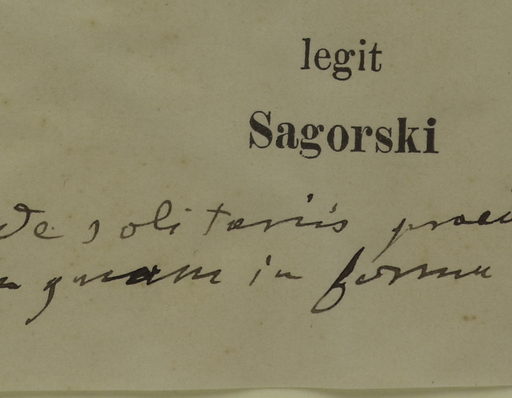 legit
Sagorski
De solitariis
quam in forma